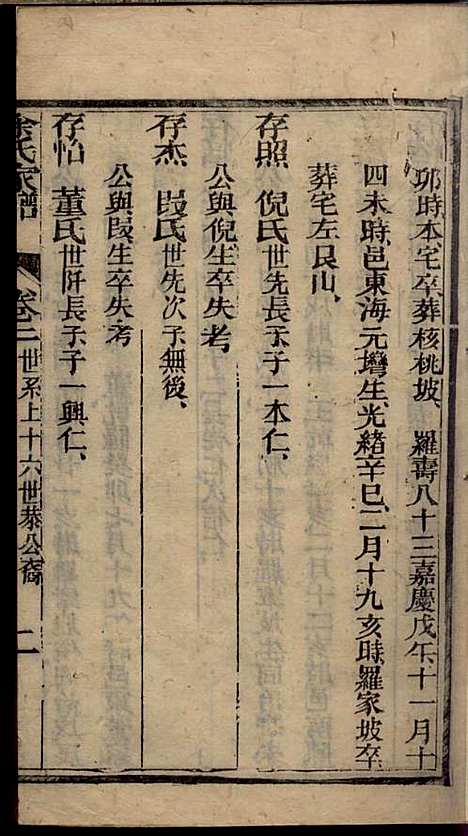 卯時本宅卒葬核桃坡、羅壽八十三嘉慶戊午十一月十
四未時邑東海元壪生光緒辛巳二月十九亥時羅家坡卒
葬宅左艮山、
存照　倪氏世先長子子一本仁、
公與倪生卒失考
存杰　段氏世先次子無後、
公與段生卒失考
存怡　董氏世阡長子子一興仁、
余氏家譜　卷二世系上十六世恭公裔　二